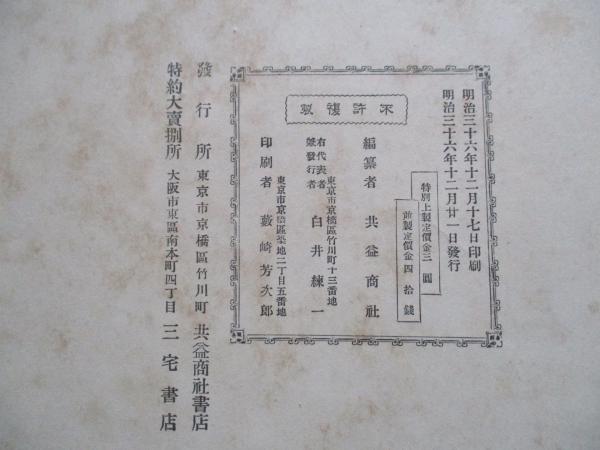 明治三十六年十二月十七日印刷
明治三十六年十二月廿一日發行
特別上製定價金三圓
並製定價金四拾錢
不許複製
編纂者 共益商社
東京市京橋區竹川町十三番地
右代表者
兼發行者 白井練一
東京市京橋區築地二丁目五番地
印刷者 藪崎芳次郎
發行所 東京市京橋區竹川町 共益商社書店
特約大賣捌所 大阪市東區南本町四丁目 三宅書店